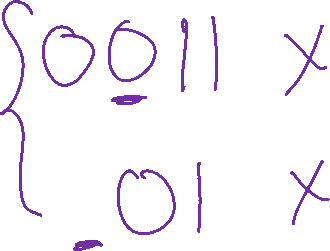 0011 x
01 x